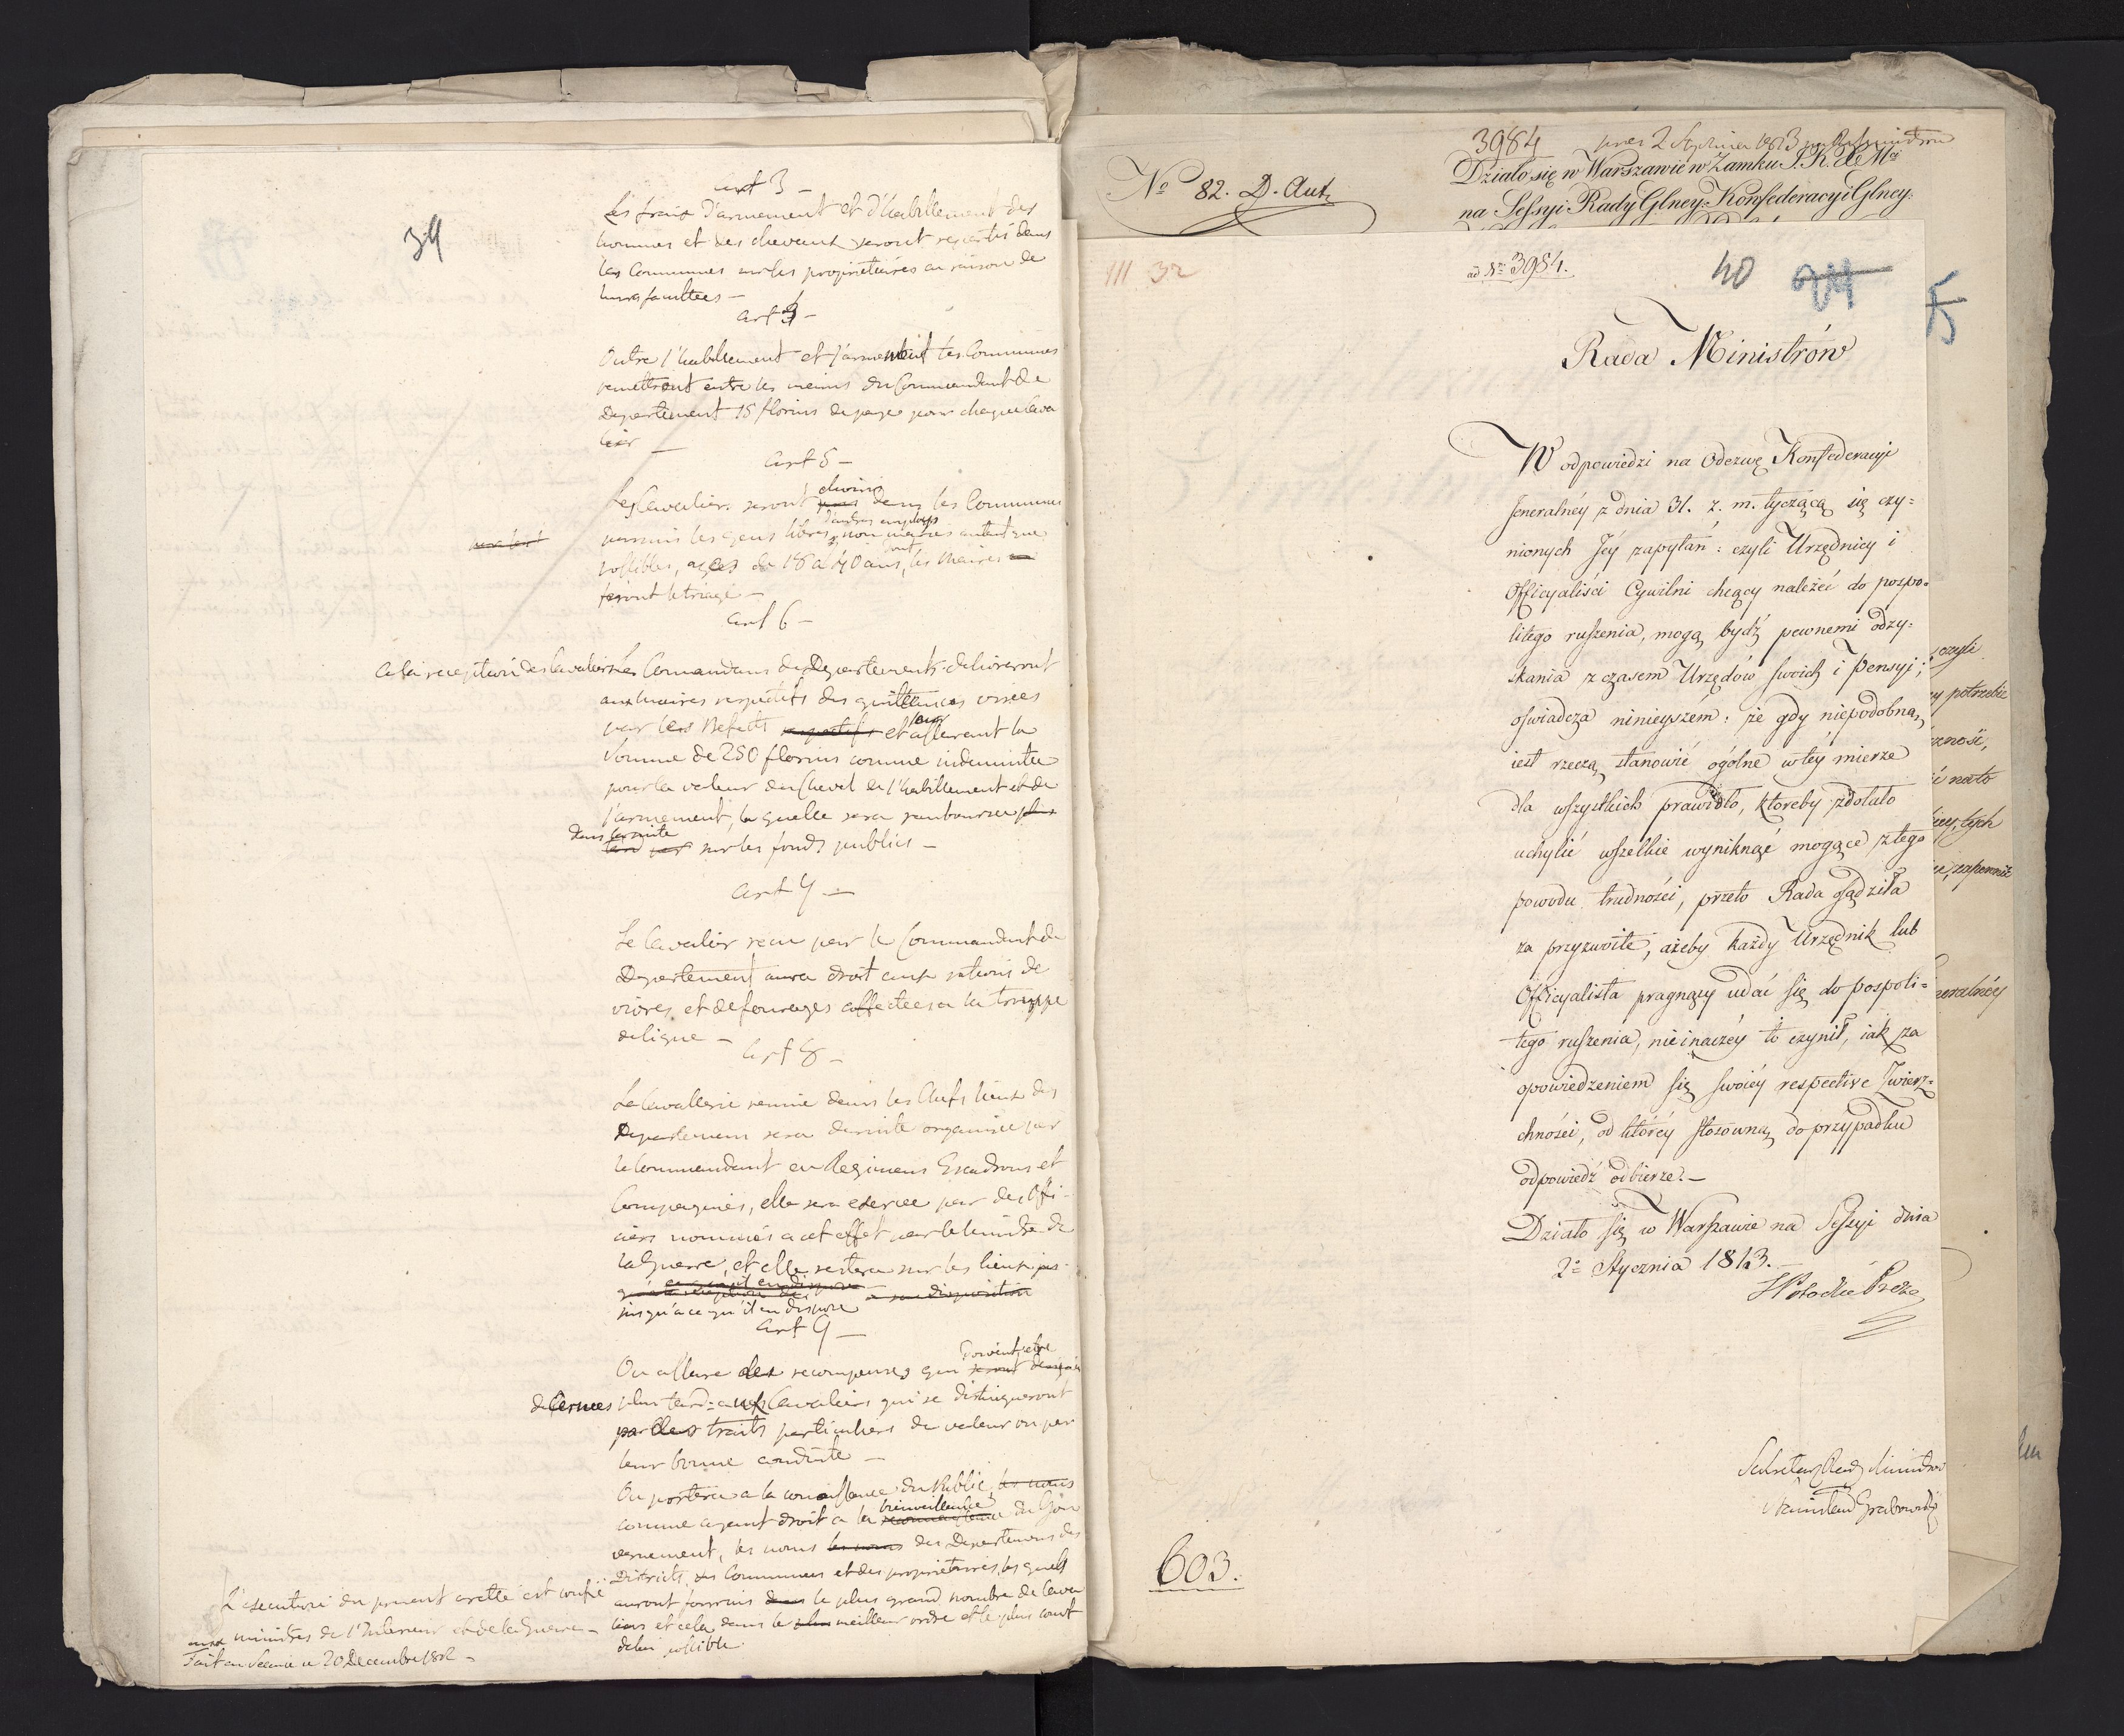 34
Art 3 —
Les frais d'armement et d'habillement des
hommes et des chevaux seront repartis dans
les Communes sur les proprietaires en raison de
leurs facultees —
Art 4 —
Outre l'habillement et l'armement les Communes
remettront entre les mains du Commandant de
Departement 15 florins de paye pour chaque Cava
lier —
Art 5 —
Les Cavaliers seront choisis dans les Communes
parmis les gens libres d'autres emplois, non mariés autant que
possibles, ages de 18 a 40 ans, les Maires en
feront le triage —
Art 6 —
A la reception des Cavaliers les Comandans des Departements delivreront
aux Maires respectifs des quittances visées
par les Prefets respectifs et leur assurant la
Somme de 250 florins comme indemnitee
pour la valeur du Cheval de l'habillement et de
l'armement, la quelle sera remboursee plus
dans la suite
tard par sur les fonds publics —
Art 7 —
Le Cavalier recu par le Commandant du
Departement aura droit aux rations de
vivres et de fourages affectees a la trouppe
de ligne —
Art 8 —
La Cavallerie reunie dans les Chefs lieux des
Departemens sera de suite organisée par
le Commandant en Regimens Escadrons et
Compagnies, elle sera exercee par des Offi-
ciers nommés a cet effet par le Ministre de
la Guerre, et elle restera sur les lieux jus-
a sa disposition
jusqu'a ce qu'il en dispose
Art 9 —
On assure des recompenses qui doivent etre
decernees plus tard aux Cavaliers qui se distingueront
par des traits particuliers de valeur ou par
leur bonne conduite —
On portera a la conoissance du Public les noms
comme ayant droit a la bienveillance du Gou
vernement, les noms les noms des Departemens des
Districts, des Communes et des proprietaires, les quels
auront fournis dans le plus grand nombre de Cava
liers et cela dans le plus meilleur ordre et le plus court
delai possible.
L'execution du present arretté est confié
aux ministres de l'Interieur et de la Guerre —
Fait en Seance le 20 Decembre 1812 —
3984
pres 2 Stycznia 1813
No 82. D. Aut.
Działo się w Warszawie w Zamku J. K. X. Mci
na Sessyi Rady Glney Konfederacyi Glney.
III 32
ad No 3984.
40
24
5
Rada Ministrów
W odpowiedzi na Odezwę Konfederacyi
Jeneralnéy z dnia 31. z. m. tyczącą się czy=
nionych Jéy zapytań: czyli Urzędnicy i
Officyaliści Cywilni chcący należeć do pospo=
litego ruszenia, mogą bydź pewnemi odzy=
skania z czasem Urzędów swoich i Pensyi;
oświadcza ninieyszém: że gdy niepodobną
iest rzeczą stanowić ogólne w téy mierze
dla wszystkich prawidło, któreby zdołało
uchylić wszelkie wyniknąć mogące z tego
powodu trudności, przeto Rada osądziła
za przyzwoite, ażeby każdy Urzędnik lub
Officyalista pragnący udać się do pospoli=
tego ruszenia, nieinaczéy to czynił, iak za
opowiedzeniem się swoiéy respective Zwierz=
chności, od któréy stosowną do przypadku
odpowiedź odbierze. —
Działo się w Warszawie na Sessyi dnia
2o Stycznia 1813.
S Potocki Prezes
Sekretarz Rady Ministrów
Stanisław Grabowski
603.
czyli
potrzebie
na to
tych
zapewnić